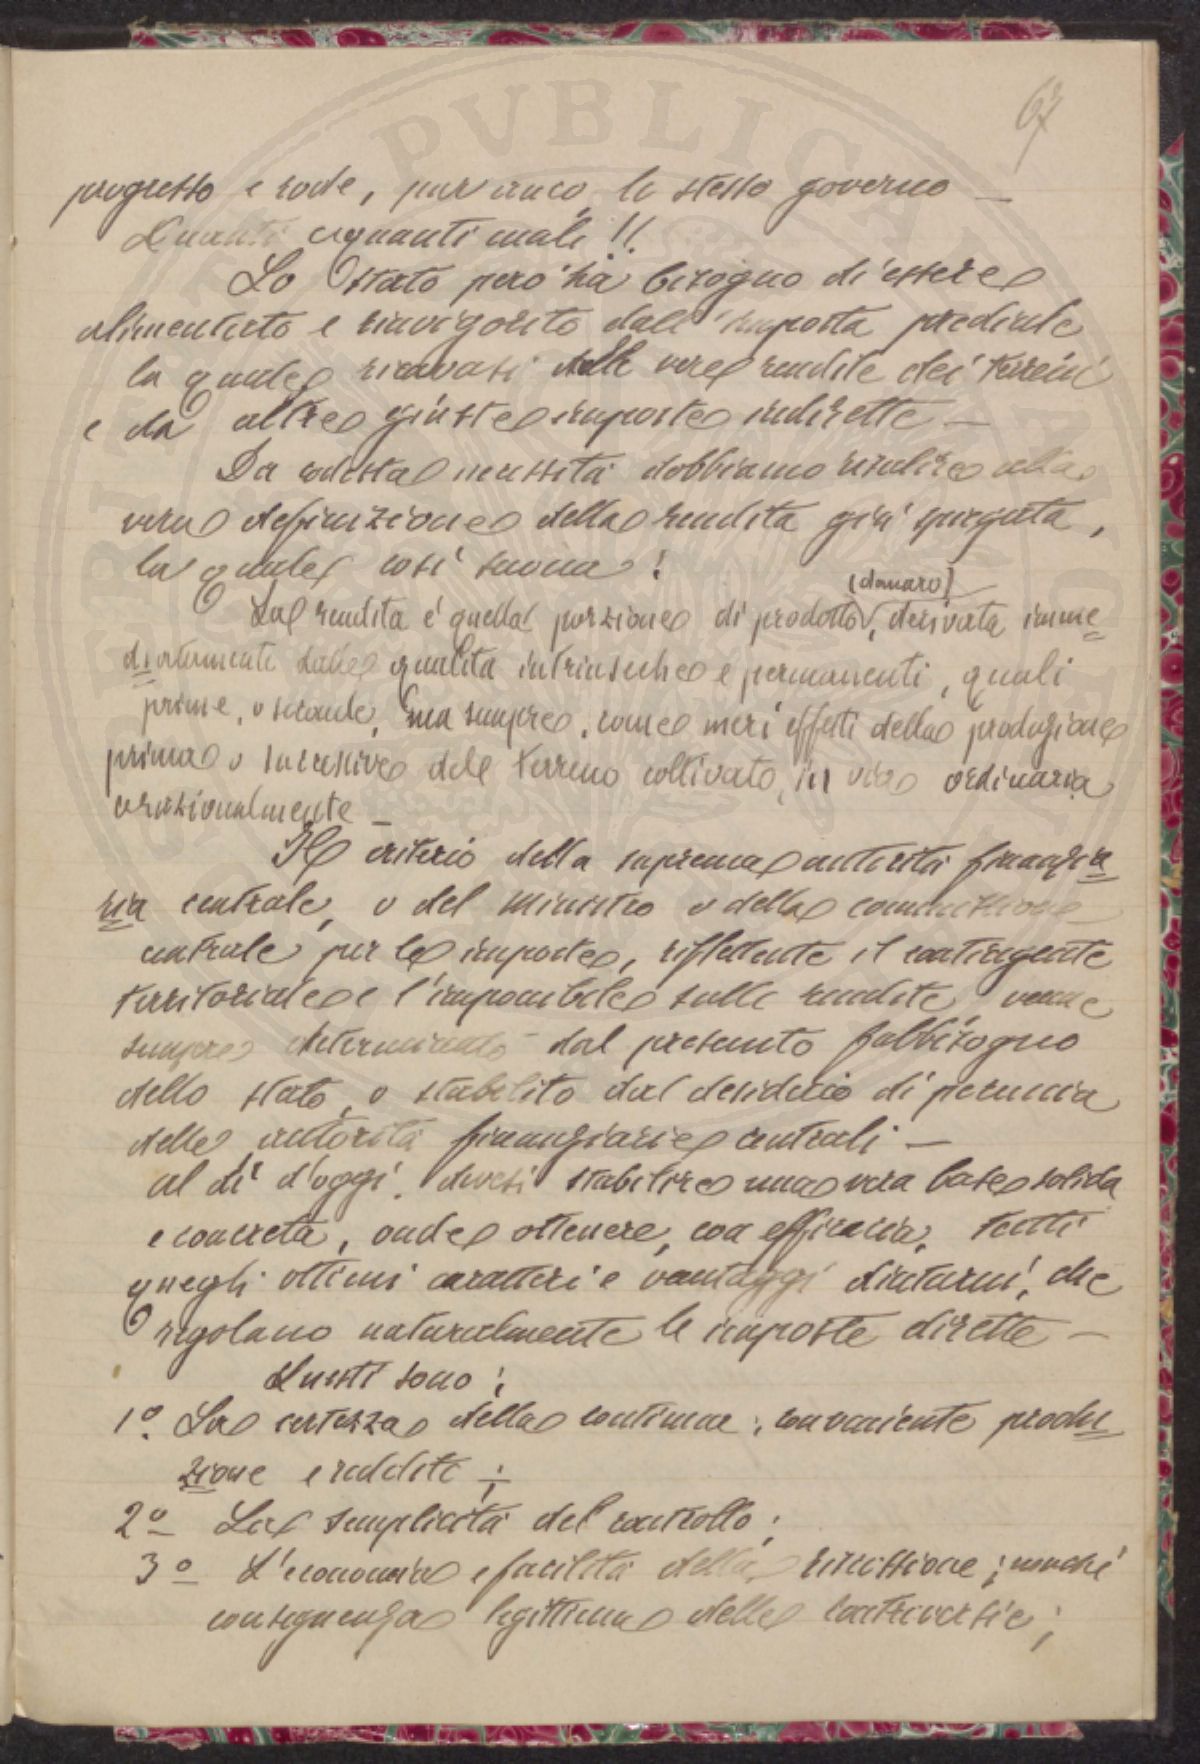 67
progresso e rode, pur anco, lo stesso governo —
Quanti e quanti mali !!
Lo stato però ha bisogno di essere
alimentato e rinvigorito dall'imposta prediale
la quale ricavasi dalle vere rendite dei terreni
e da altre giuste imposte indirette —
Da codesta necessità dobbiamo risalire alla
vera definizione della rendita già spiegata,
la quale così suona:
(danaro)
La rendita è quella porzione di prodotto, derivata imme=
diatamente dalle qualità intrinseche e permanenti, quali
prime, o seconde, ma sempre, come meri effetti della produzione
prima o successiva del terreno coltivato, in via ordinaria
o razionalmente —
Il criterio della suprema autorità finanzia=
ria centrale, o del ministro o della commissione
centrale per le imposte, riflettente il contingente
territoriale e l'imponibile sulle rendite, venne
sempre determinato dal presunto fabbisogno
dello stato, o stabilito dal desiderio di pecunia
delle autorità finanziarie centrali —
al dì d'oggi, devesi stabilire una vera base solida
e concreta, onde ottenere, con efficacia, tutti
quegli ottimi caratteri e vantaggi diuturni, che
regolano naturalmente le imposte dirette —
Questi sono:
1º. La certezza della continua, conveniente produ=
zione e reddito;
2º La semplicità del controllo;
3º L'economia e facilità della riscossione; nonché
conseguenza legittima delle controversie;
PVBLICA